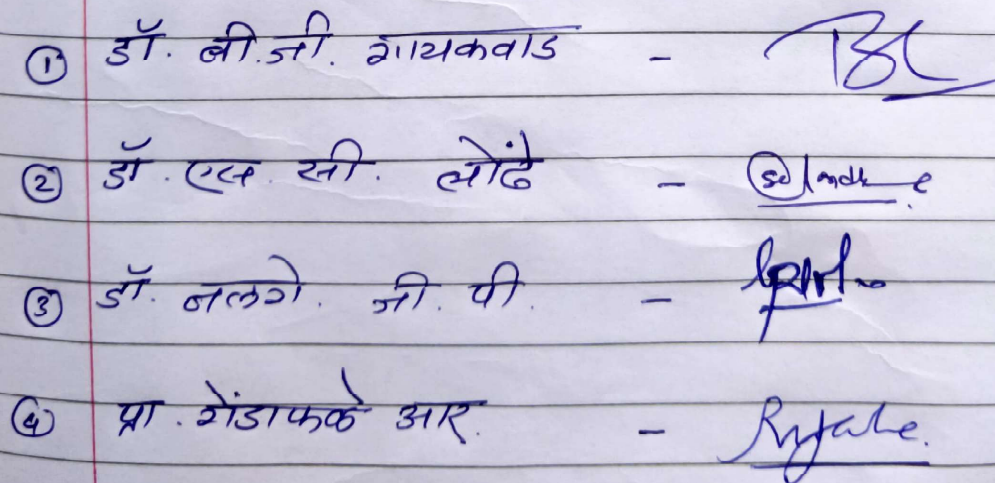 ① डॉ. बी.जी. गायकवाड -
② डॉ. एस. सी. लोंढे -
③ डॉ. नलगे. जी. पी. -
④ प्रा. गेंडाफळे आर. -